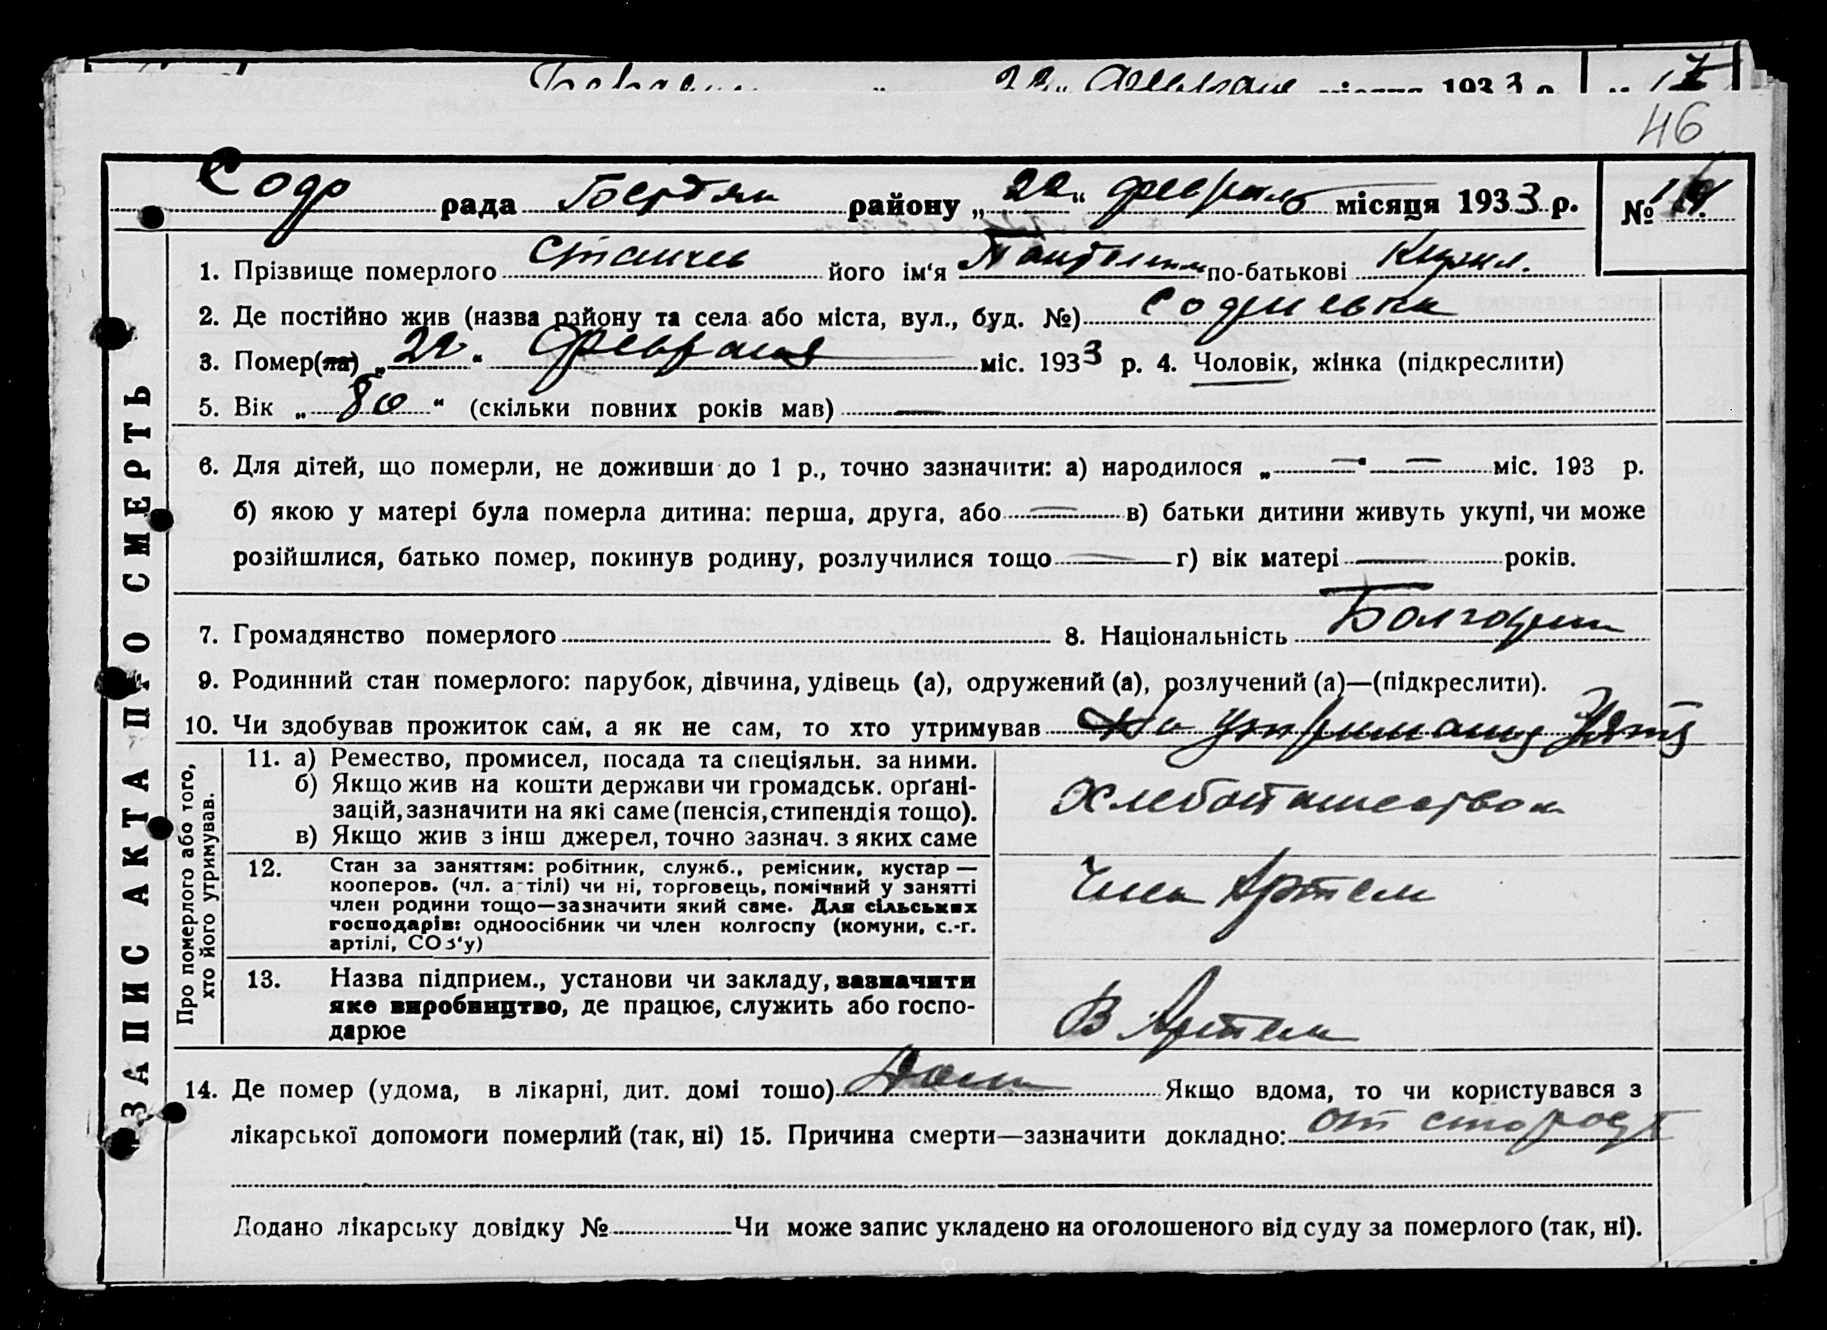 22 193 3 р. № 17
46
Содр рада Бердян району „22“ февраль місяця 1933 р. № 14
1. Прізвище померлого Станчев його ім‘я Пантелим по-батькові Кирил.
2. Де постійно жив (назва району та села або міста, вул., буд. №)
3. Помер(ла) „22“ февраля міс. 1933 р. 4. Чоловік, жінка (підкреслити)
5. Вік „80“ (скільки повних років мав)
6. Для дітей, що померли, не доживши до 1 р., точно зазначити: а) народилося „—“ — міс. 193 р.
б) якою у матері була померла дитина: перша, друга, або — в) батьки дитини живуть укупі, чи може
розійшлися, батько помер, покинув родину, розлучилися тощо — г) вік матері — років.
7. Громадянство померлого 8. Національність
9. Родинний стан померлого: парубок, дівчина, удівець (а), одружений (а), розлучений (а)—(підкреслити).
10. Чи здобував прожиток сам, а як не сам, то хто утримував На утриманню Зятя
ЗАПИС АКТА ПРО СМЕРТЬ
Про померлого або того, хто його утримував.
11. а) Ремество, промисел, посада та спеціяльн. за ними.
б) Якщо жив на кошти держави чи громадськ. орґані-
зацій, зазначити на які саме (пенсія, стипендія тощо).
в) Якщо жив з інш джерел, точно зазнач. з яких саме
Хлебопашество
12. Стан за заняттям: робітник, служб., ремісник, кустар —
кооперов. (чл. артілі) чи ні, торговець, помічний у занятті
член родини тощо—зазначити який саме. Для сільських
господарів: одноосібник чи член колгоспу (комуни, с.-г.
артілі, СОЗ‘у)
Член Артели
13. Назва підприєм., установи чи закладу, зазначити
яке виробництво, де працює, служить або госпо-
дарює
В Артели
14. Де помер (удома, в лікарні, дит. домі тощо) Дома Якщо вдома, то чи користувався з
лікарської допомоги померлий (так, ні) 15. Причина смерти—зазначити докладно: от старост
Додано лікарську довідку № Чи може запис укладено на оголошеного від суду за померлого (так, ні).